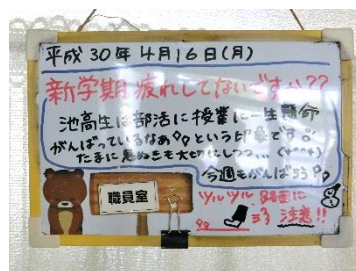 平成30年4月16日(月)
新学期疲れしてないですか??
池高生は部活に授業に一生懸命
がんばっているなぁ。という印象です。
たまに息ぬきも大切にしつつ…(^^^^)
今週もがんばろう
職員室
ツルツル路面に
注意!!